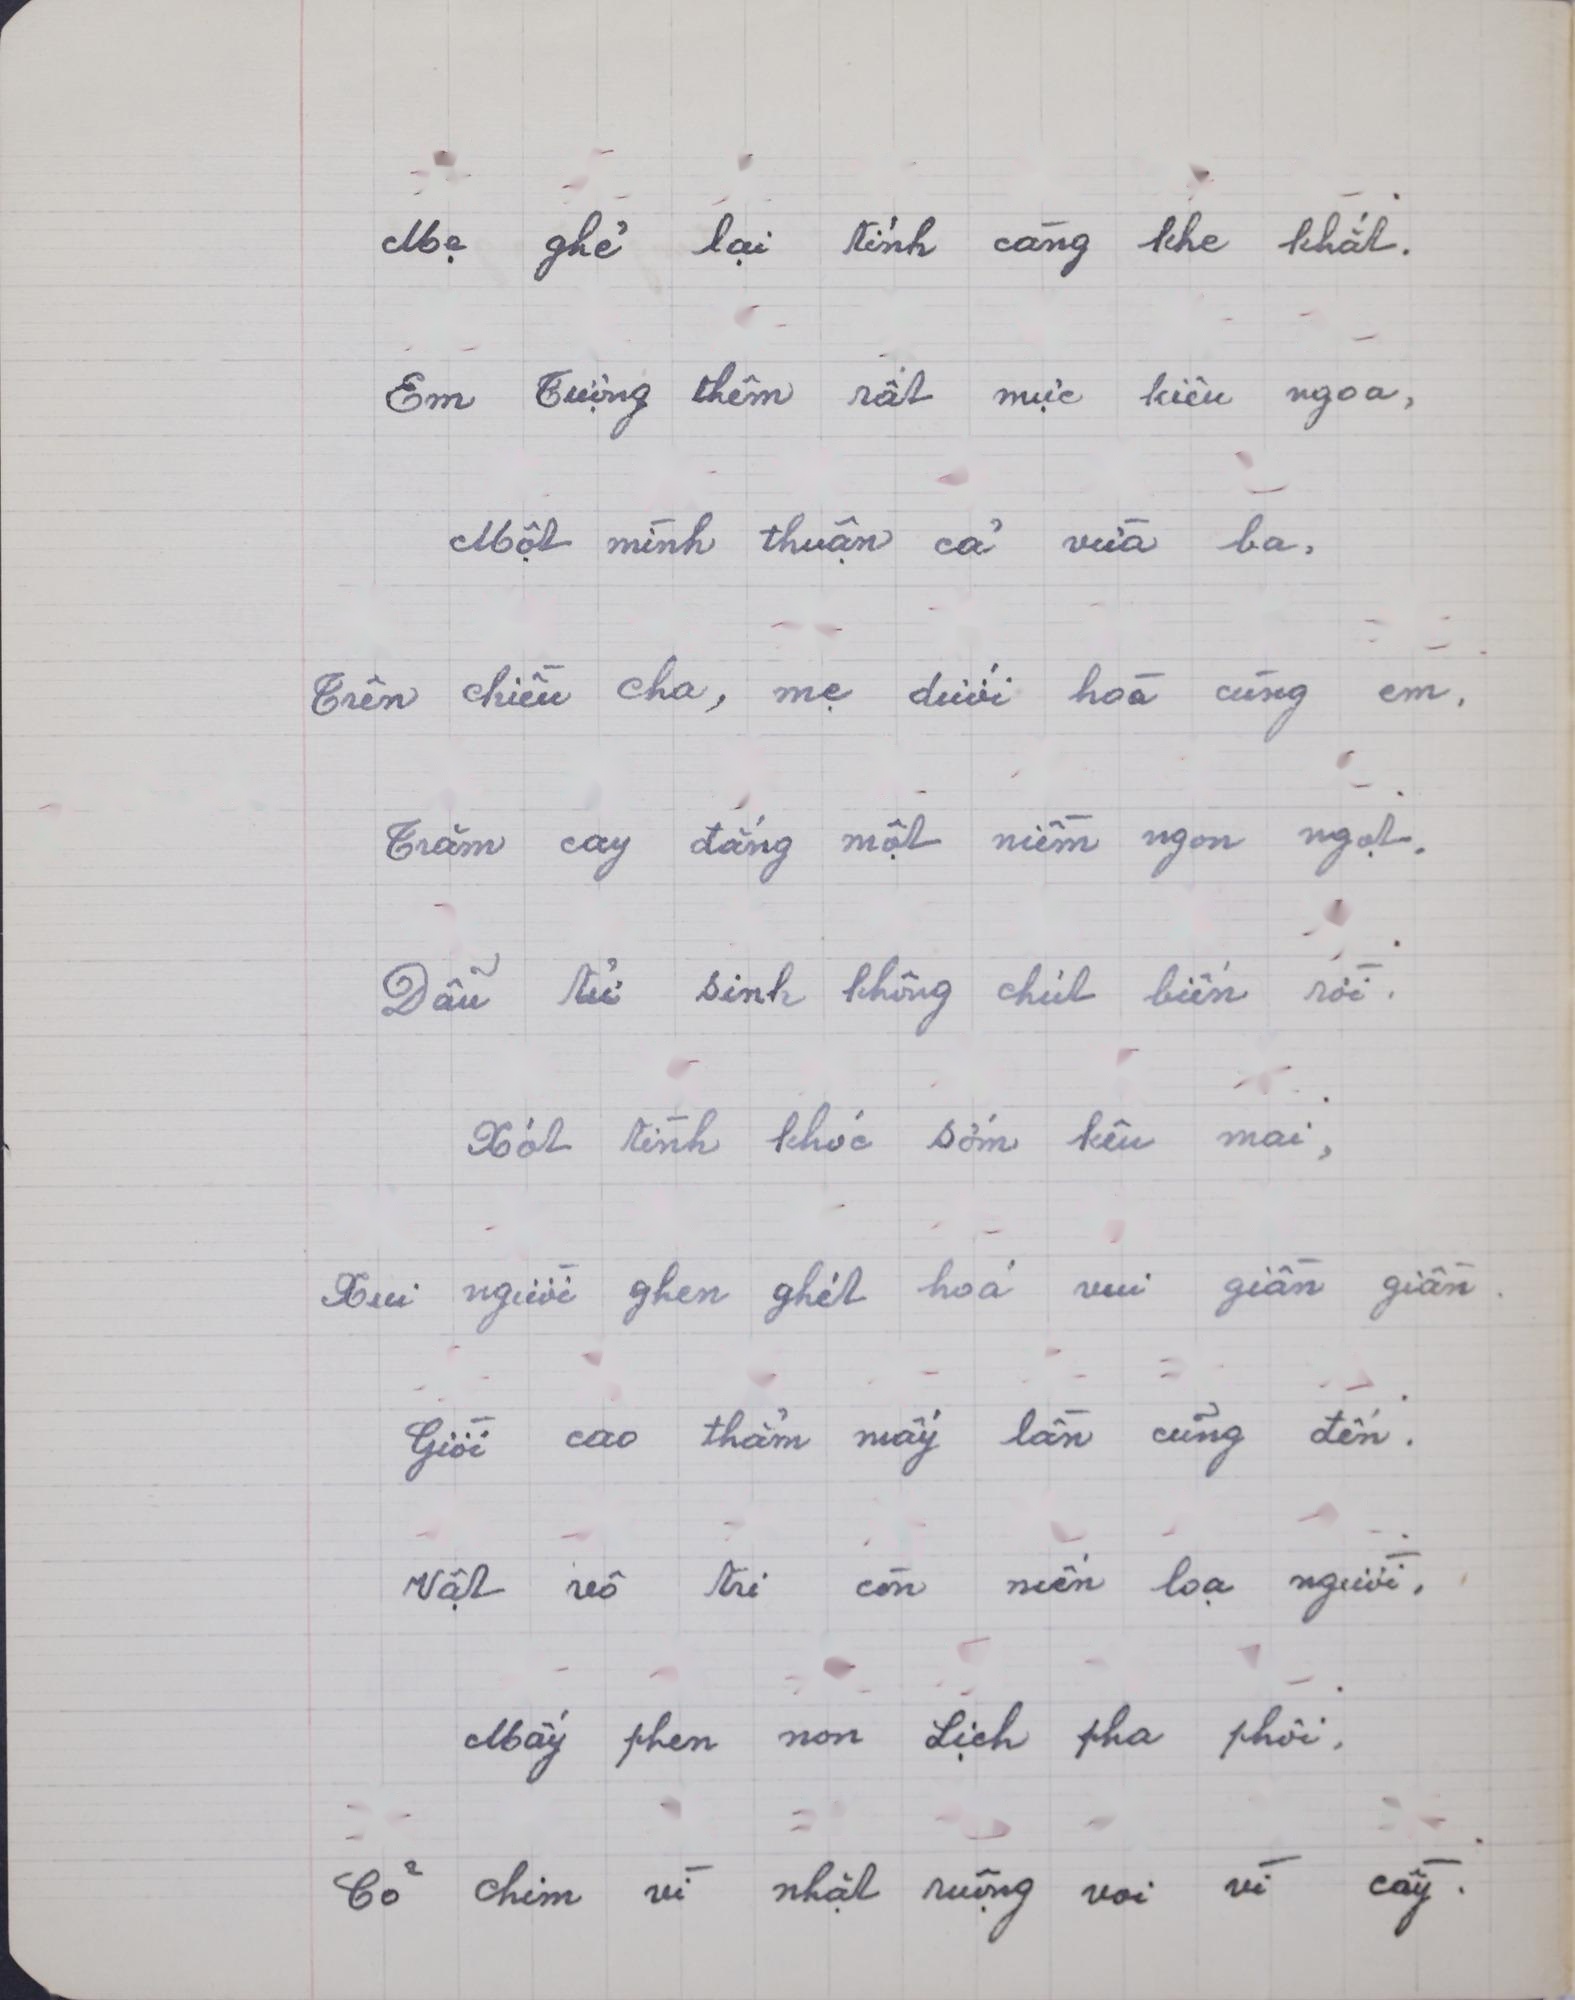 Mẹ ghẻ lại tính càng khe khắt.
Em Tượng thêm rất mực kiêu ngoa,
Một mình thuận cả vừa ba,
Trên chiều cha, mẹ dưới hoà cùng em.
Trăm cay đắng một niềm ngon ngọt.
Dẫu tử sinh không chút biến rời.
Xót tình khóc sớm kêu mai,
Xui người ghen ghét hoá vui giần giần.
Giời cao thẳm mấy lần cũng đến.
Vật vô tri còn mến lọ người.
Mấy phen non Lịch pha phôi,
Cỏ chim vì nhặt ruộng voi vì cầy.